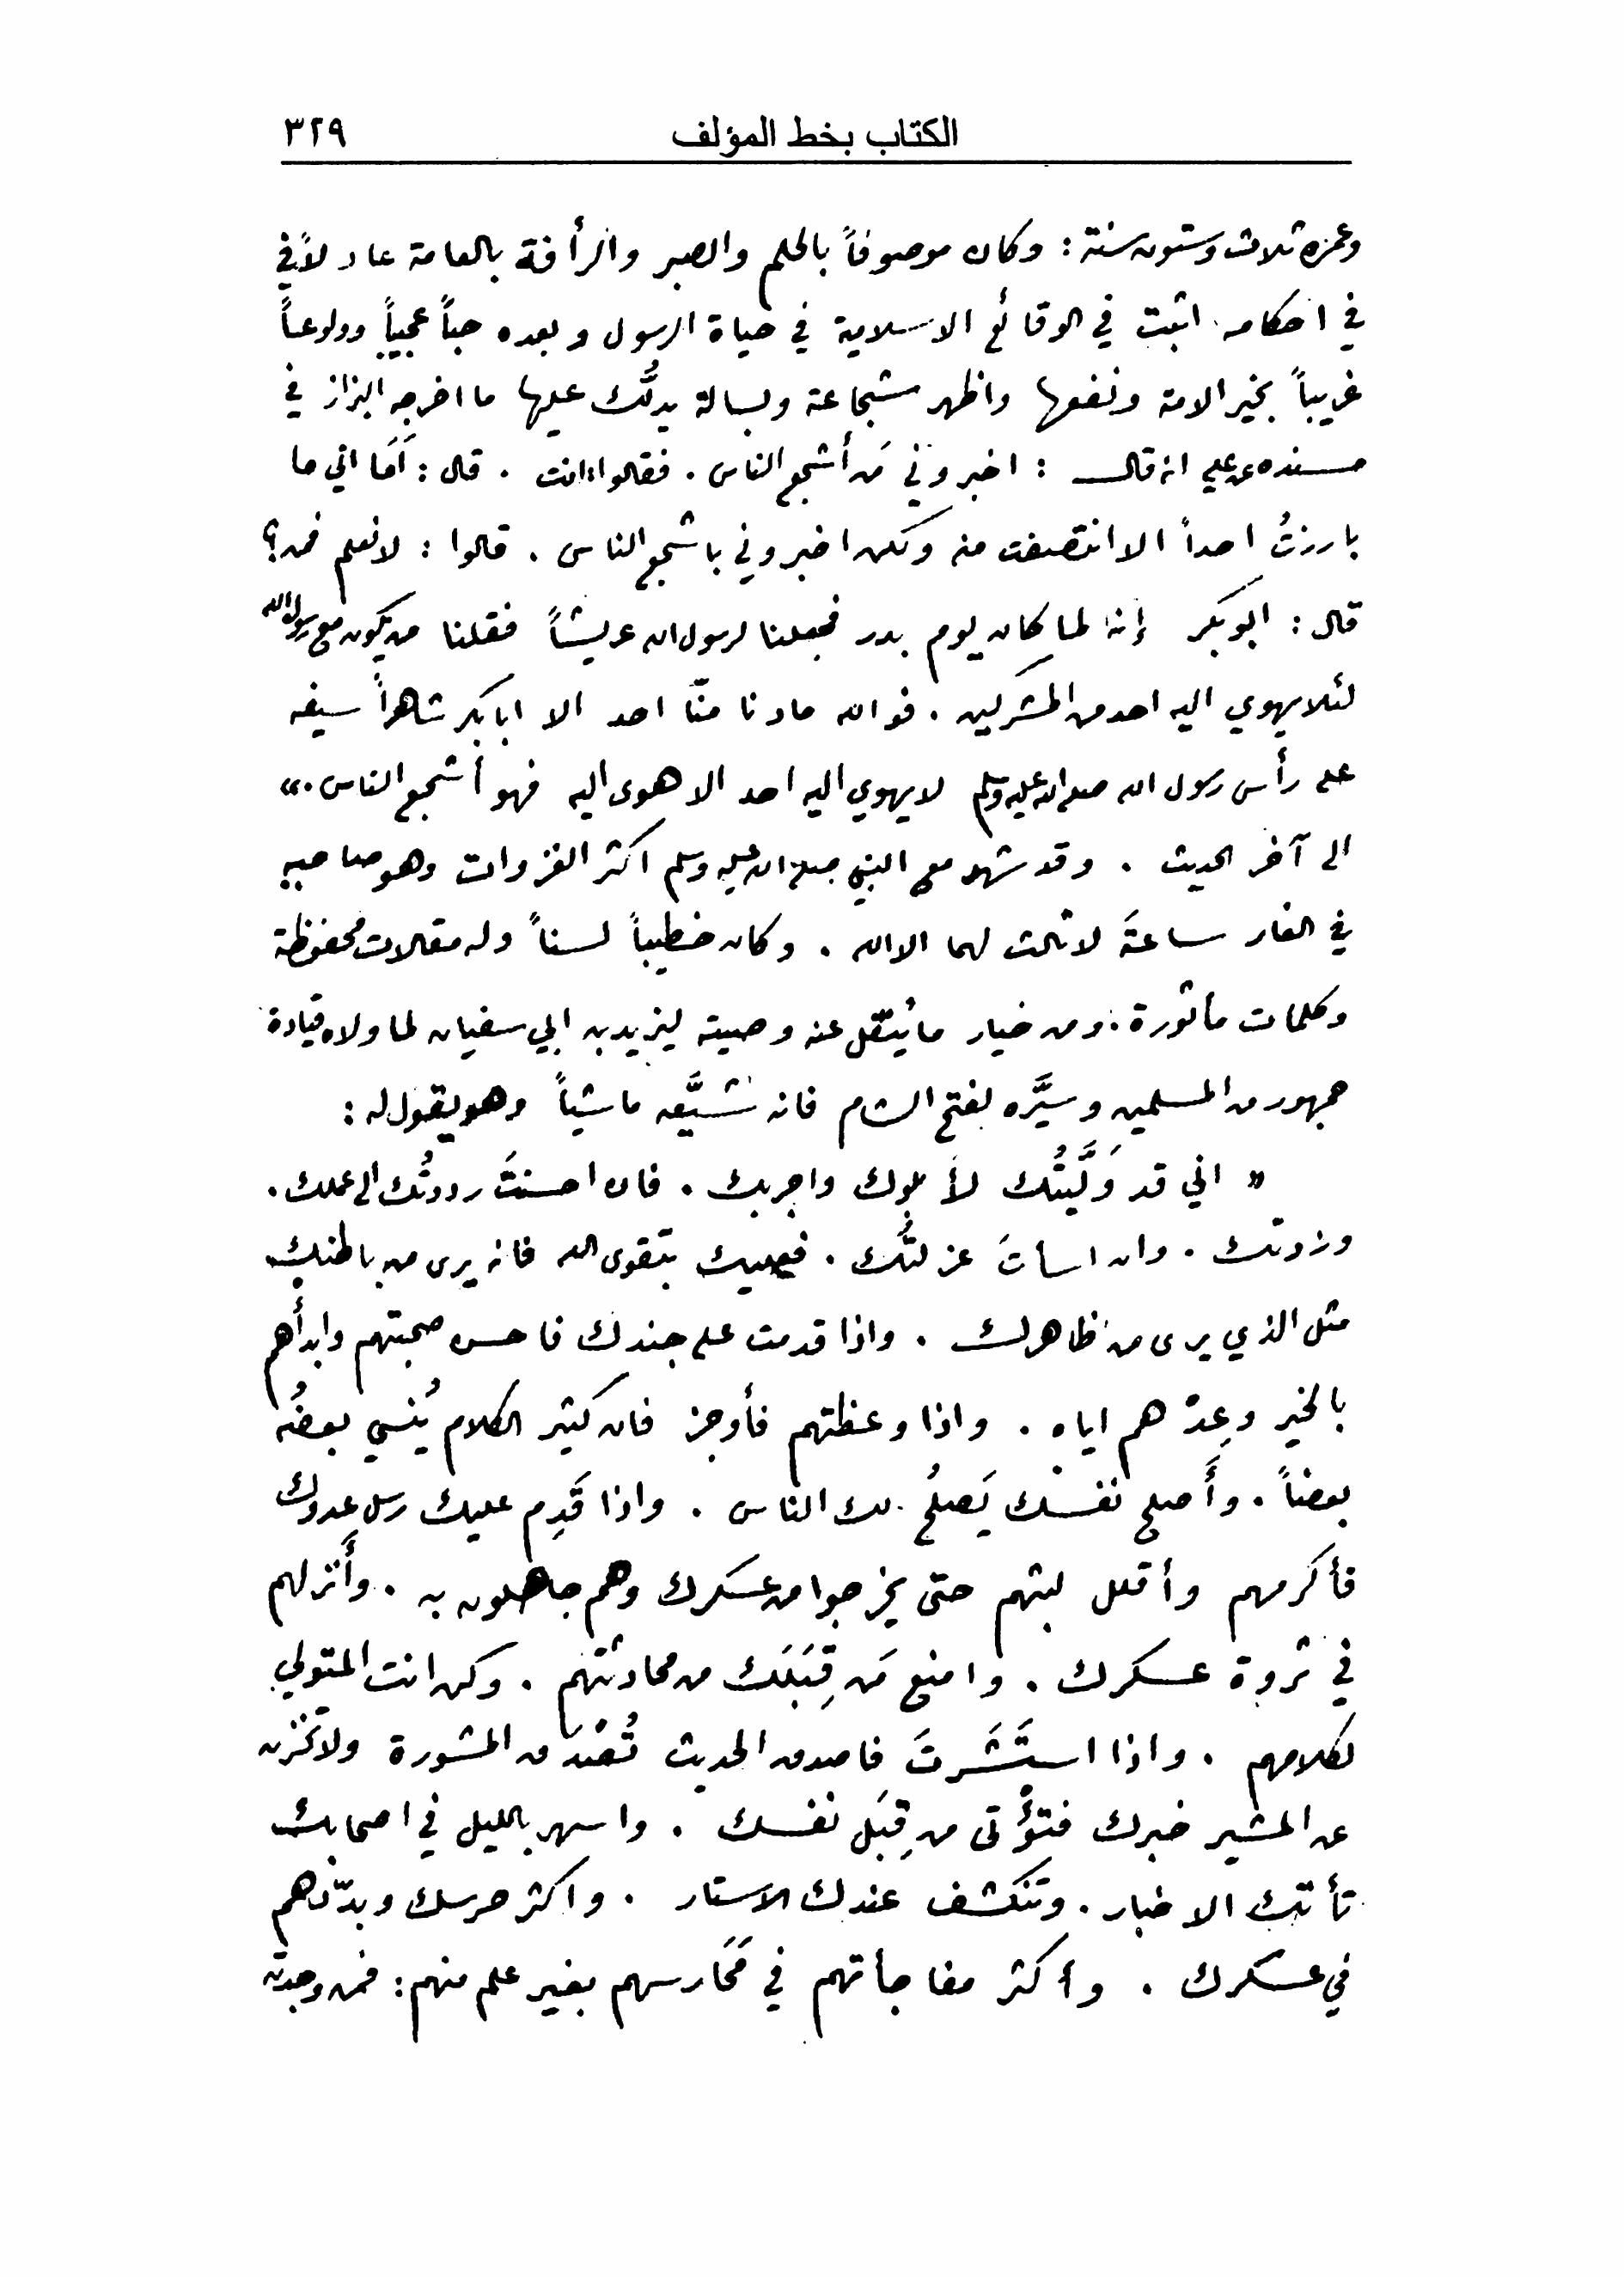 الكتاب بخط المؤلف ٣٢٩
وعمره ثلاث وستون سنة : وكان موصوفاً بالحلم والصبر والرأفة بالعامة عادلاً في
في احكامه اثبت في الوقائع الاسلامية في حياة الرسول وبعده حباً عجيباً وولوعاً
غريباً بخير الامة ونفعها واظهر شجاعة وبسالة يدلُّك عليها ما اخرجه البزاز في
مسنده عن علي انه قال : اخبروني مَن أشجع الناس . فقالوا : انت . قال : أمَا اني ما
بارزتُ احداً الا انتصفت منه ولكن اخبروني باشجع الناس . قالوا : لا نعلم فمن ؟
قال : ابو بكر إنه لما كان يوم بدر فجعلنا لرسول الله عريشاً فقلنا من يكون مع رسول الله
لئلا يهوي اليه احد من المشركين . فوالله مادنا منّا احد الا ابا بكر شاهراً سيفه
على رأس رسول الله صلى الله عليه وسلم لا يهوي اليه احد الا هوى اليه فهو أشجع الناس . »
الى آخر الحديث . وقد شهد مع النبي صلى الله عليه وسلم اكثر الغزوات وهو صاحبه
في الغار ساعةَ لا ثالث لهما الا الله . وكان خطيباً لسناً وله مقالات محفوظة
وكلمات مأثورة . ومن خيار ما يُنقل عنه وصيته ليزيد بن ابي سفيان لما ولاه قيادة
جمهور من المسلمين وسيَّره لفتح الشام فانه شيَّعه ماشياً وهو يقول له :
« اني قد وَلَّيتُك لأبلوك واجربك . فان احسنتَ رددتُك الى عملك .
وزدتك . وان اسأتَ عزلتُك . فعليك بتقوى الله فانه يرى من باطنك
مثل الذي يرى من ظاهرك . واذا قدمت على جندك فاحسن صحبتهم وابدأهم
بالخير وعِدْهم اياه . واذا وعظتهم فأوجز فان كثير الكلام يُنسي بعضُه
بعضاً . وأَصلح نفسك يَصلُح لك الناس . واذا قَدِم عليك رسل عدوك
فأكرمهم وأقلل لبثهم حتى يخرجوا من عسكرك وهم جاهلون به . وأَنزلهم
في ثروة عسكرك . وامنع مَن قِبَلك من محادثتهم . وكن انت المتولي
لكلامهم . واذا استَشَرتَ فاصدق الحديث تُصْدَق المشورة ولا تخزن
عن المشير خبرك فتؤتى من قِبَل نفسك . واسهر بالليل في اصحابك
تأتك الاخبار . وتنكشف عندك الاستار . واكثر حرسك وبدّدهم
في عسكرك . وأكثر مفاجأتهم في مَحَارسهم بغير علم منهم : فمن وجدته